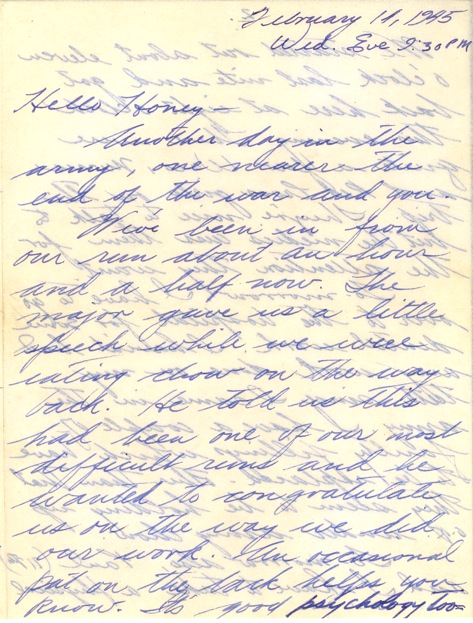 February 14, 1945
Wed. Eve 9:30 PM
Hello Honey –
Another day in the
army, one nearer the
end of the war and you.
We've been in from
our run about an hour
and a half now. The
major gave us a little
speech while we were
eating chow on the way
back. He told us this
had been one of our most
difficult runs and he
wanted to congratulate
us on the way we did
our work. An occasional
pat on the back helps you
know. It's good psychology too–